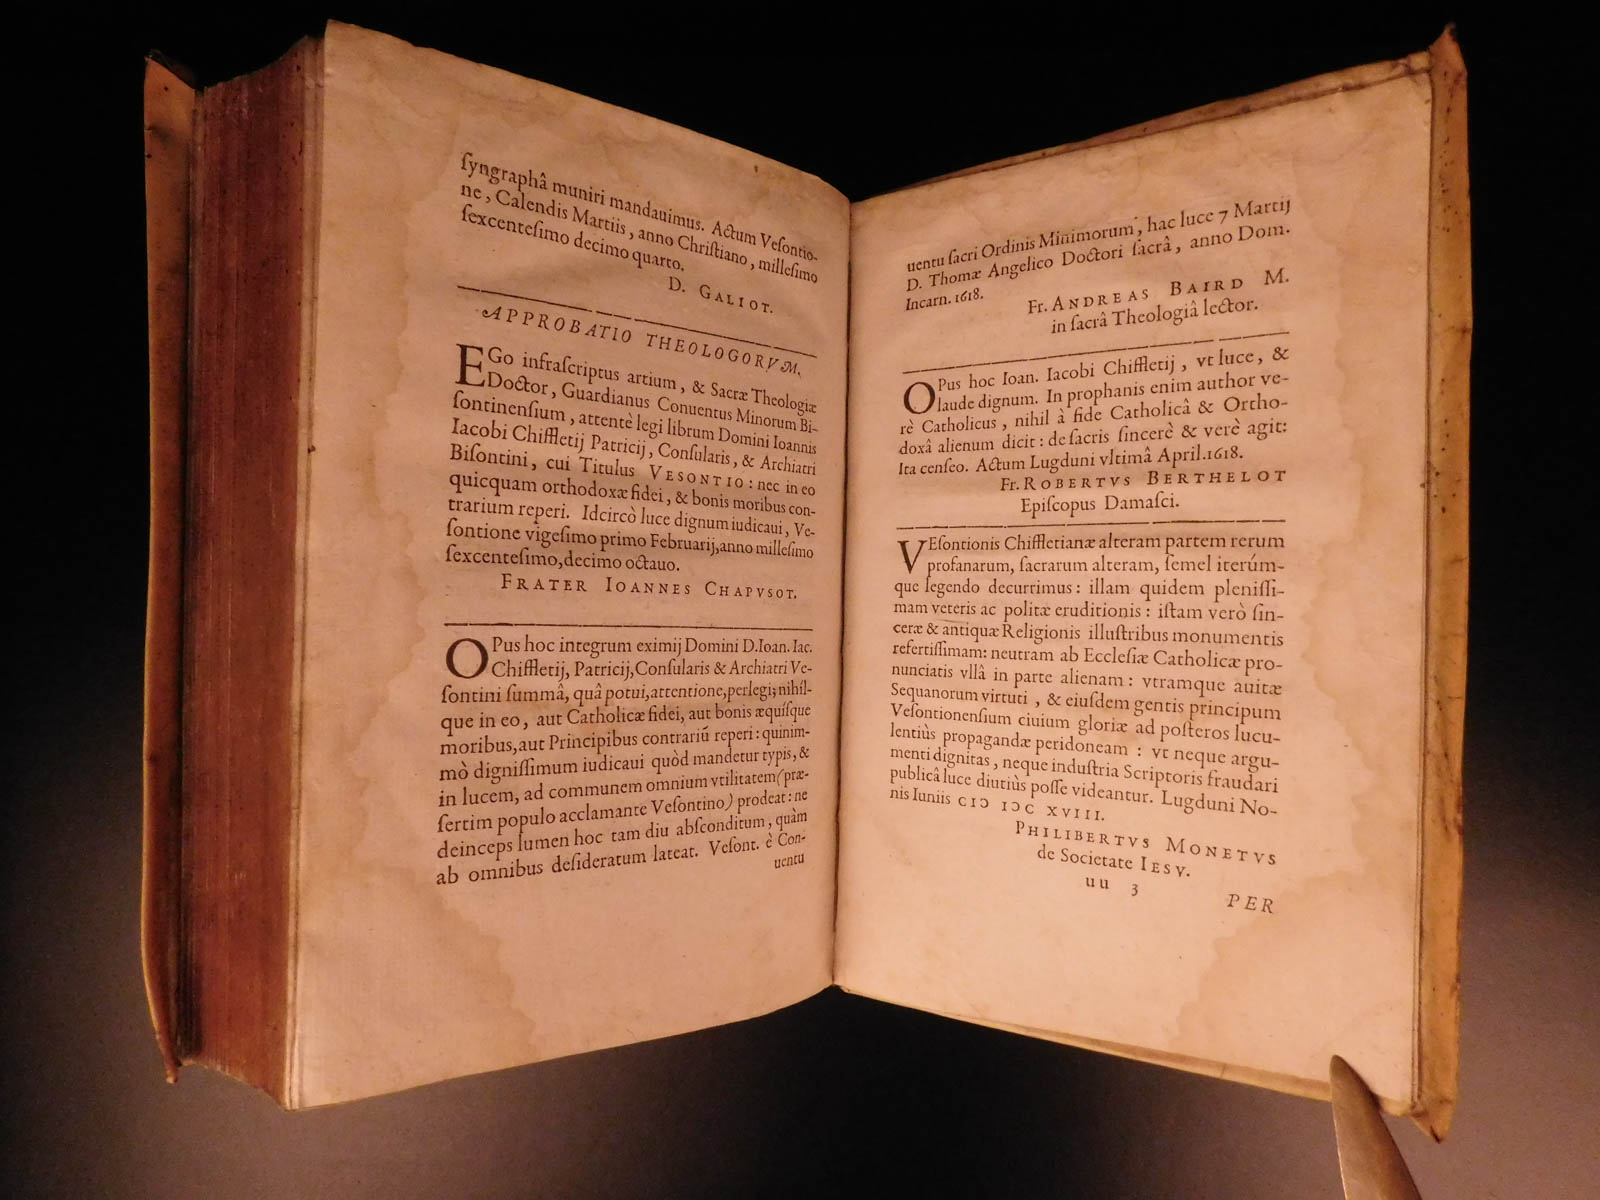 ſyngraphâ muniri mandauimus. Actum Veſontio-
ne, Calendis Martiis, anno Chriſtiano, milleſimo
ſexcenteſimo decimo quarto.
D. GALIOT.
APPROBATIO THEOLOGORVM.
EGo infraſcriptus artium, & Sacræ Theologiæ
Doctor, Guardianus Conuentus Minorum Bi-
ſontinenſium, attentè legi librum Domini Ioannis
Iacobi Chiffletij Patricij, Conſularis, & Archiatri
Biſontini, cui Titulus VESONTIO: nec in eo
quicquam orthodoxæ fidei, & bonis moribus con-
trarium reperi. Idcircò luce dignum iudicaui, Ve-
ſontione vigeſimo primo Februarij, anno milleſimo
ſexcenteſimo, decimo octauo.
FRATER IOANNES CHAPVSOT.
OPus hoc integrum eximij Domini D. Ioan. Iac.
Chiffletij, Patricij, Conſularis & Archiatri Ve-
ſontini ſummâ, quâ potui, attentione, perlegi; nihil-
que in eo, aut Catholicæ fidei, aut bonis æquiſque
moribus, aut Principibus contrariũ reperi: quinim-
mò digniſſimum iudicaui quòd mandetur typis, &
in lucem, ad communem omnium vtilitatem (præ-
ſertim populo acclamante Veſontino) prodeat: ne
deinceps lumen hoc tam diu abſconditum, quàm
ab omnibus deſideratum lateat. Veſont. è Con-
uentu
uentu ſacri Ordinis Minimorum, hac luce 7 Martij
D. Thomæ Angelico Doctori ſacrâ, anno Dom.
Incarn. 1618.
Fr. ANDREAS BAIRD M.
in ſacrâ Theologiâ lector.
OPus hoc Ioan. Iacobi Chiffletij, vt luce, &
laude dignum. In prophanis enim author ve-
rè Catholicus, nihil à fide Catholicâ & Ortho-
doxâ alienum dicit: de ſacris ſincerè & verè agit:
Ita cenſeo. Actum Lugduni vltimâ April. 1618.
Fr. ROBERTVS BERTHELOT
Epiſcopus Damaſci.
VEſontionis Chiffletianæ alteram partem rerum
profanarum, ſacrarum alteram, ſemel iterúm-
que legendo decurrimus: illam quidem pleniſſi-
mam veteris ac politæ eruditionis: iſtam verò ſin-
ceræ & antiquæ Religionis illuſtribus monumentis
refertiſſimam: neutram ab Eccleſiæ Catholicæ pro-
nunciatis vllâ in parte alienam: vtramque auitæ
Sequanorum virtuti, & eiuſdem gentis principum
Veſontionenſium ciuium gloriæ ad poſteros lucu-
lentiùs propagandæ peridoneam: vt neque argu-
menti dignitas, neque induſtria Scriptoris fraudari
publicâ luce diutiùs poſſe videantur. Lugduni No-
nis Iuniis CIↃ IↃC XVIII.
PHILIBERTVS MONETVS
de Societate IESV.
uu 3
PER